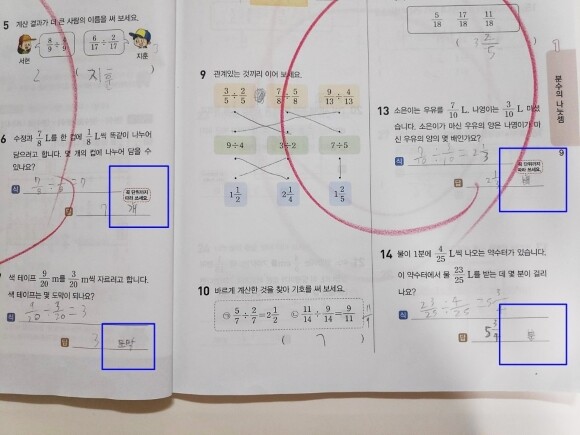 5 계산 결과가 더 큰 사람의 이름을 써 보세요.
8/9 ÷ 4/9
6/17 ÷ 2/17
서현
지훈
2
( 지훈 )
6 수정과 7/8 L를 한 컵에 1/8 L씩 똑같이 나누어
담으려고 합니다. 몇 개의 컵에 나누어 담을 수
있나요?
식 7/8 ÷ 1/8 = 7
꼭 단위까지
따라 쓰세요.
답 7 개
색 테이프 9/20 m를 3/20 m씩 자르려고 합니다.
색 테이프는 몇 도막이 되나요?
9/20 ÷ 3/20 = 3
답 3 도막
9 관계있는 것끼리 이어 보세요.
3/5 ÷ 2/5
7/8 ÷ 5/8
9/13 ÷ 4/13
9÷4
3÷2
7÷5
1 1/2
2 1/4
1 2/5
10 바르게 계산한 것을 찾아 기호를 써 보세요.
㉠ 5/7 ÷ 2/7 = 2 1/2
㉡ 11/14 ÷ 9/14 = 9/11
( )
5/18 17/18 11/18
분수의 나눗셈
13 소은이는 우유를 7/10 L, 나영이는 3/10 L 마셨
습니다. 소은이가 마신 우유의 양은 나영이가 마
신 우유의 양의 몇 배인가요?
식
꼭 단위까지
따라 쓰세요.
답 2 1/3 배
9
14 물이 1분에 4/25 L씩 나오는 약수터가 있습니다.
이 약수터에서 물 23/25 L를 받는 데 몇 분이 걸리
나요?
식 23/25 ÷ 4/25 = 5 3/4
답 5 3/4 분